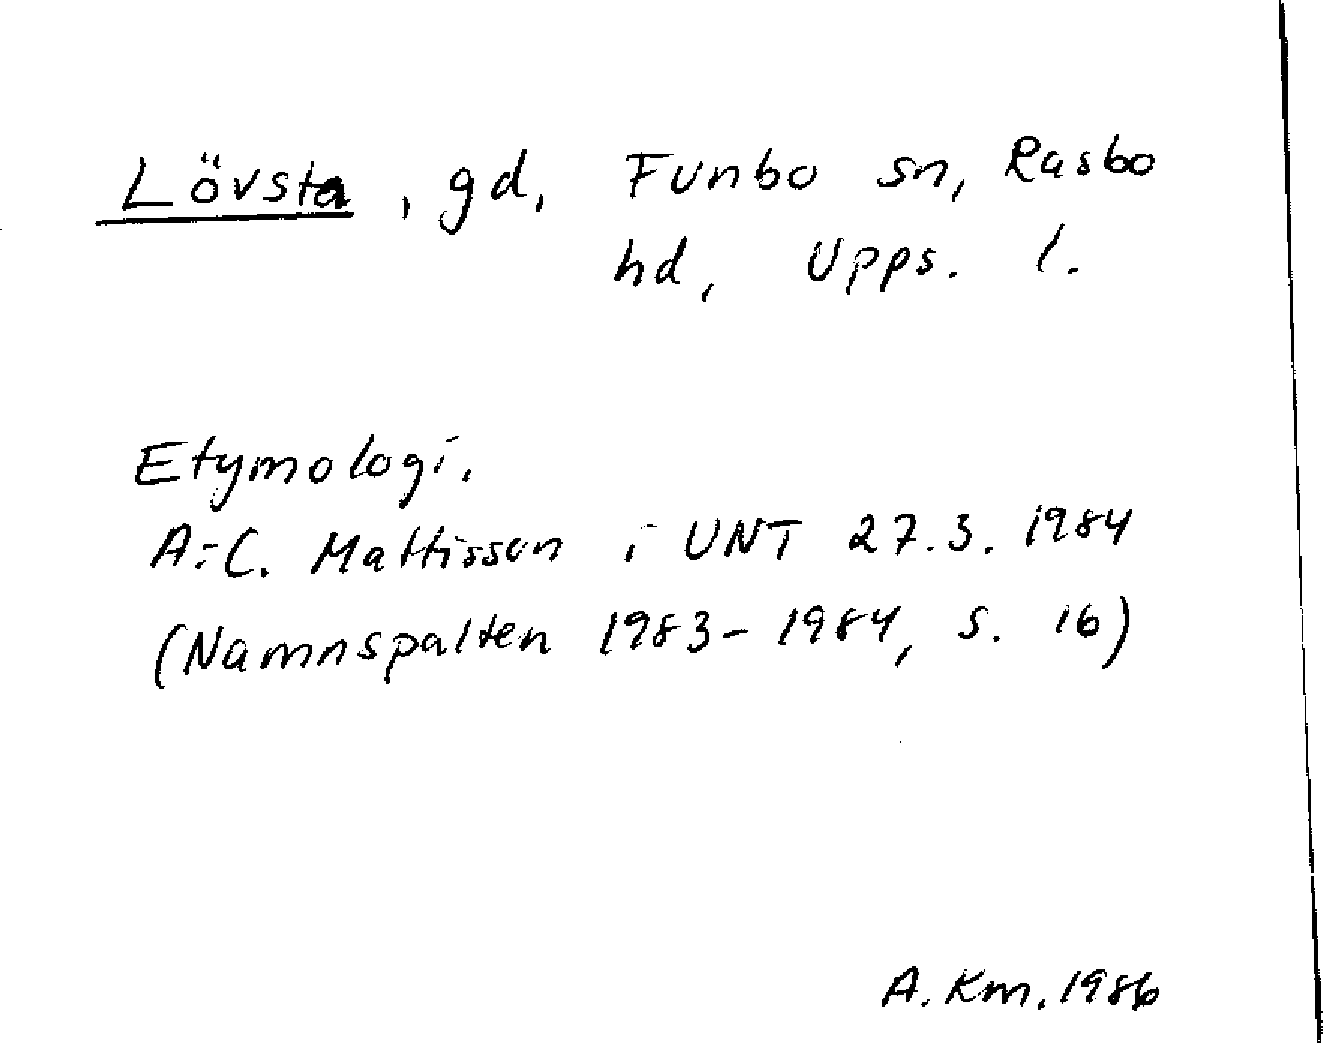 Lövsta, gd, Funbo sn, Rasbo
hd, Upps. l.
Etymologi.
A-C. Mattisson i UNT 27.3.1984
(Namnspalten 1983-1984, s. 16)
A. Km. 1986